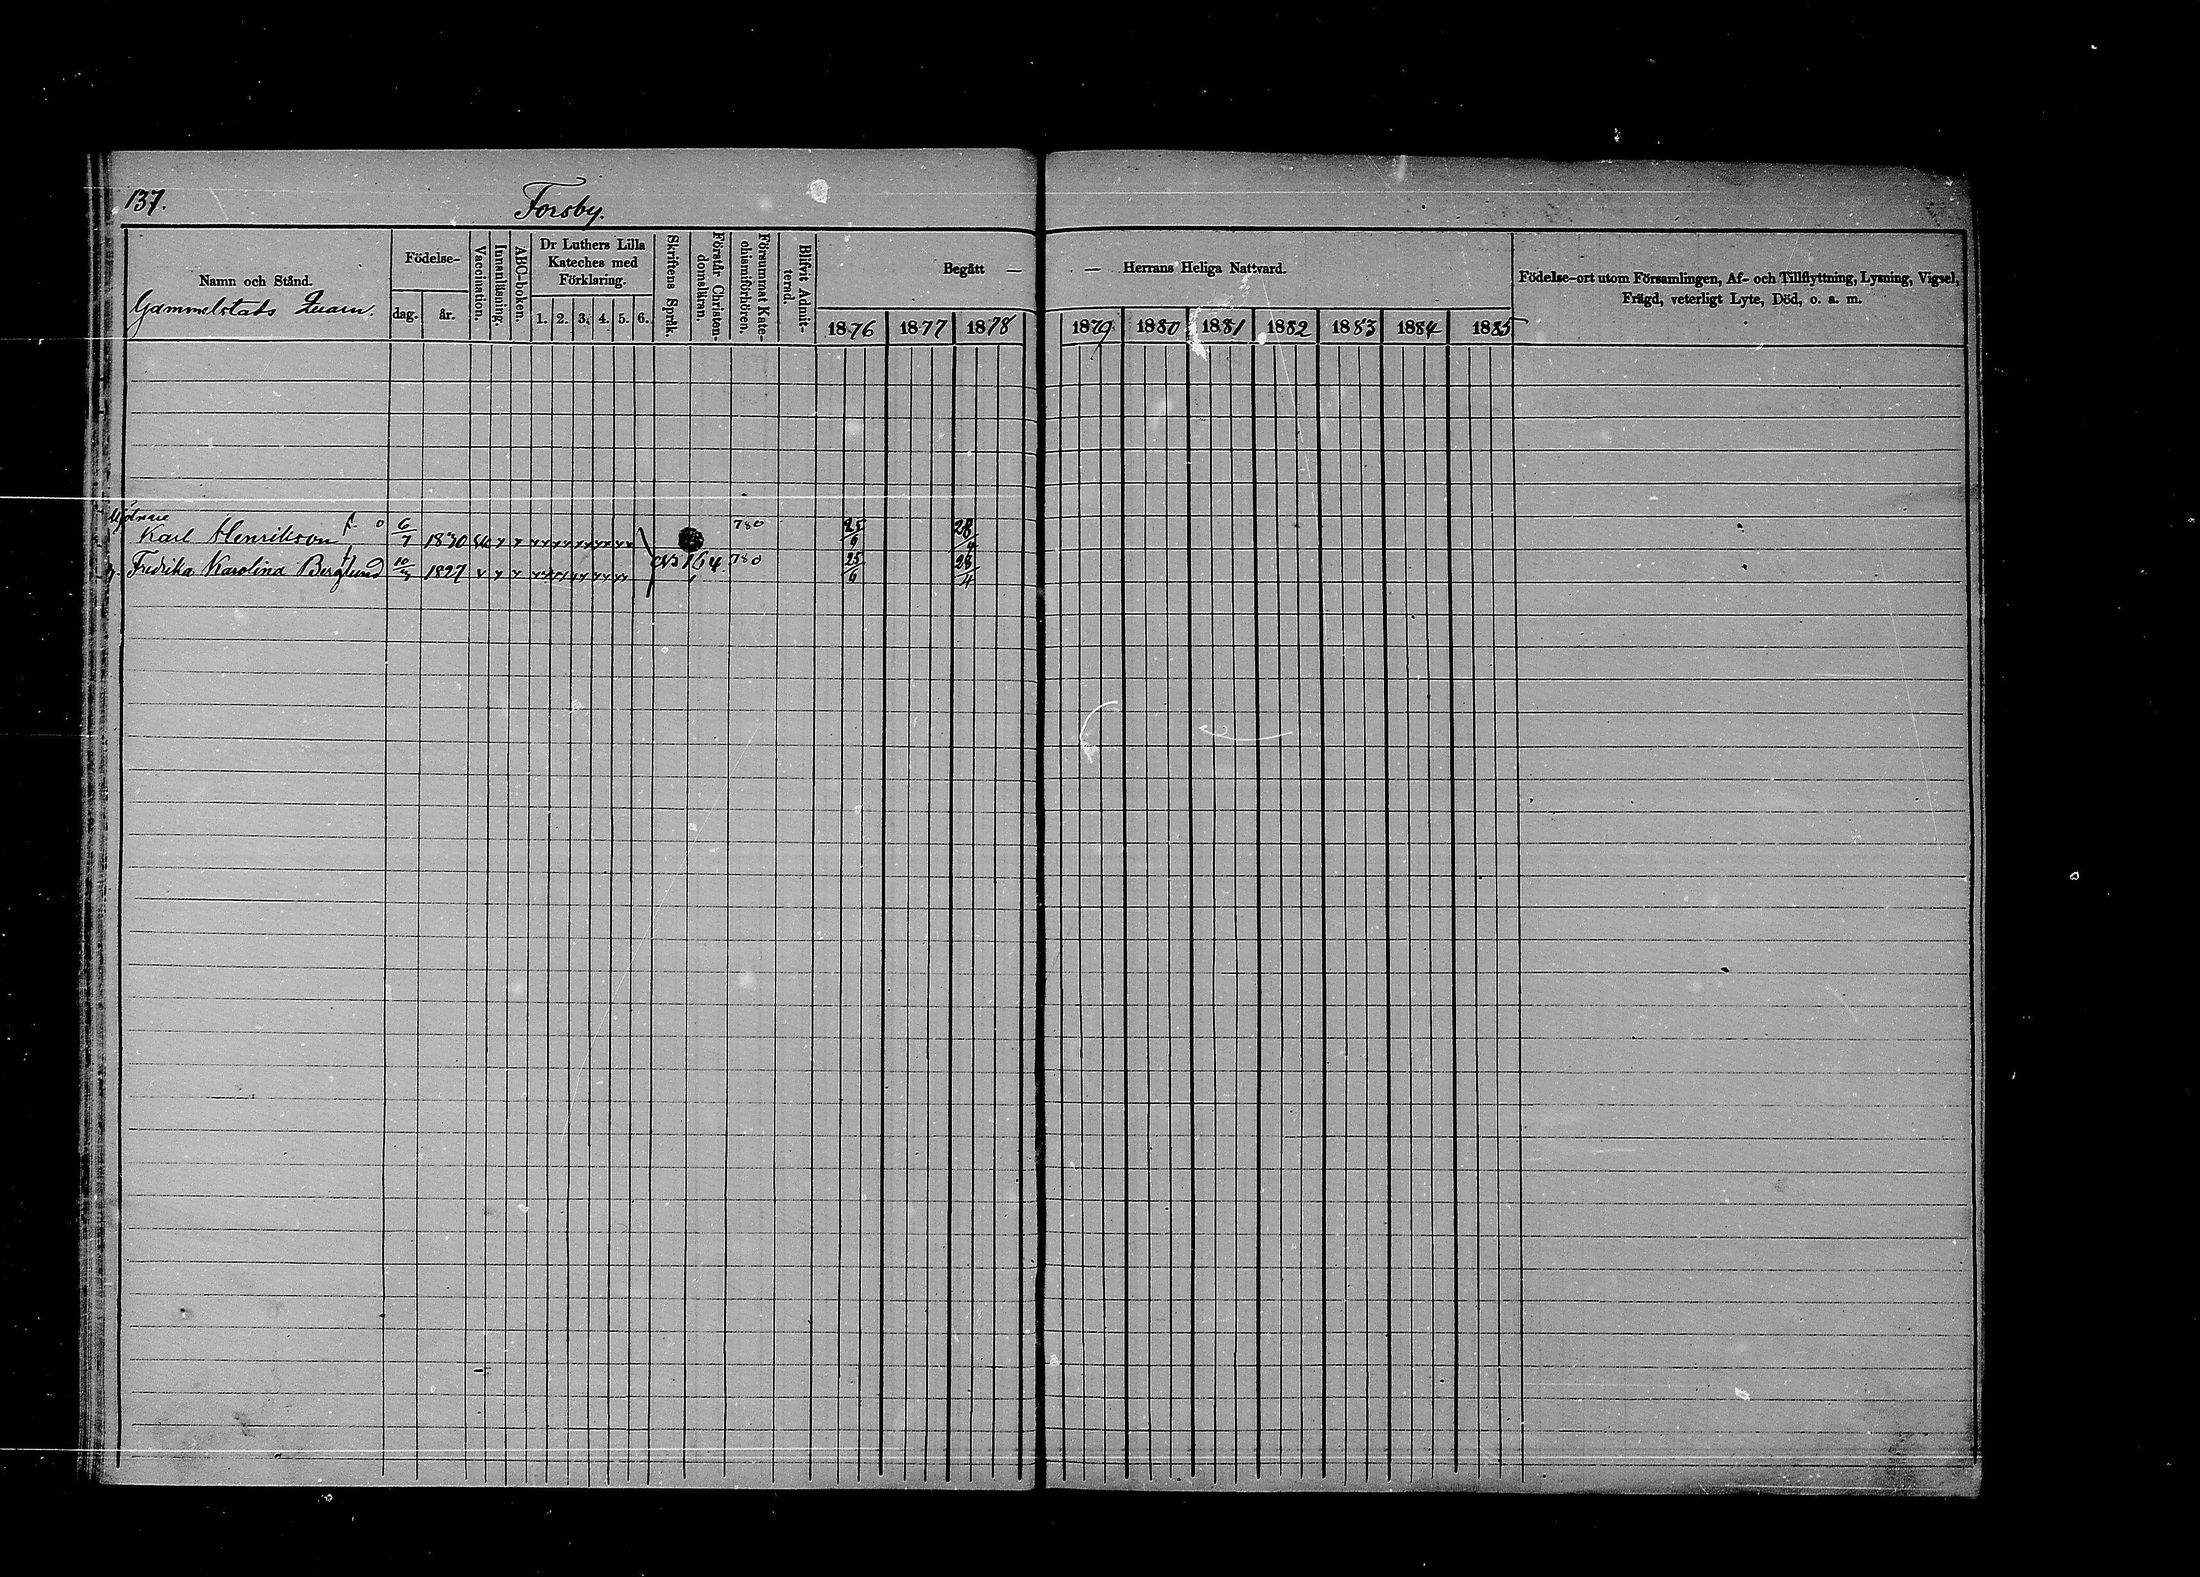 137.
Forsby.
Namn och Stånd.
Gammelstads
Födelse-
dag.
år.
Vaccination.
Innanläsning.
ABC-boken.
Dr Luthers Lilla
Kateches med
Förklaring.
1. 2. 3. 4. 5. 6.
Skriftens Språk.
Förstår Christen-
domsläran.
Försummat Kate-
chismiförhören.
Blifvit Admit-
terad.
Begått — — Herrans Heliga Nattvard.
1876 1877 1878 1879 1880 1881 1882 1883 1884 1885
Födelse-ort utom Församlingen, Af- och Tillflyttning, Lysning, Vigsel,
Frägd, veterligt Lyte, Död, o. a. m.
Karl Henrikson 6/7 1830 780 25/6 28/4
Fredrika Karolina Berglund 1827 164. 780 25/6 28/4